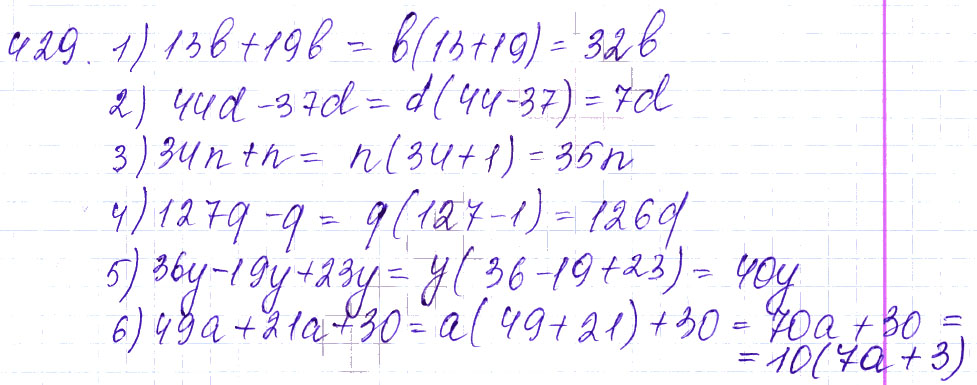 429. 1) 13b + 19b = b(13+19) = 32b
2) 44d - 37d = d(44-37) = 7d
3) 34n + n = n(34+1) = 35n
4) 127q - q = q(127-1) = 126q
5) 36y - 19y + 23y = y(36-19+23) = 40y
6) 49a + 21a + 30 = a(49+21) + 30 = 70a + 30 =
= 10(7a + 3)